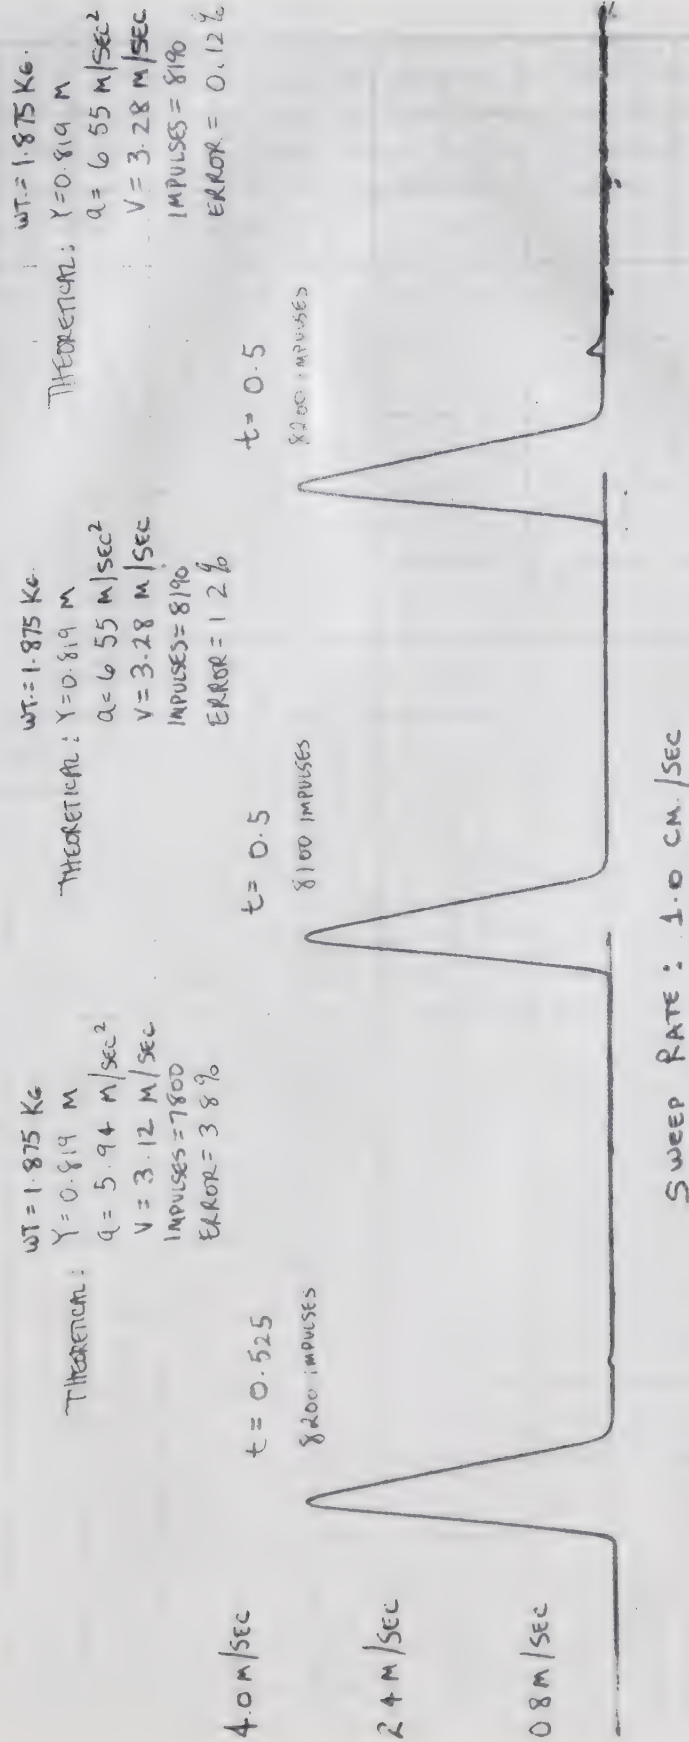 WT = 1.875 KG
THEORETICAL: Y = 0.819 M
a = 5.94 M/SEC²
V = 3.12 M/SEC
IMPULSES = 7800
ERROR = 3 8 %
t = 0.525
8200 IMPULSES
WT. = 1.875 KG.
THEORETICAL: Y = 0.819 M
a = 6 55 M/SEC²
V = 3.28 M/SEC
IMPULSES = 8190
ERROR = 1 2 %
t = 0.5
8100 IMPULSES
WT. = 1.875 KG.
THEORETICAL: Y = 0.819 M
a = 6 55 M/SEC²
V = 3.28 M/SEC
IMPULSES = 8190
ERROR = 0.12 %
t = 0.5
8200 IMPULSES
4.0 M/SEC
2 4 M/SEC
0 8 M/SEC
SWEEP RATE : 1.0 CM./SEC